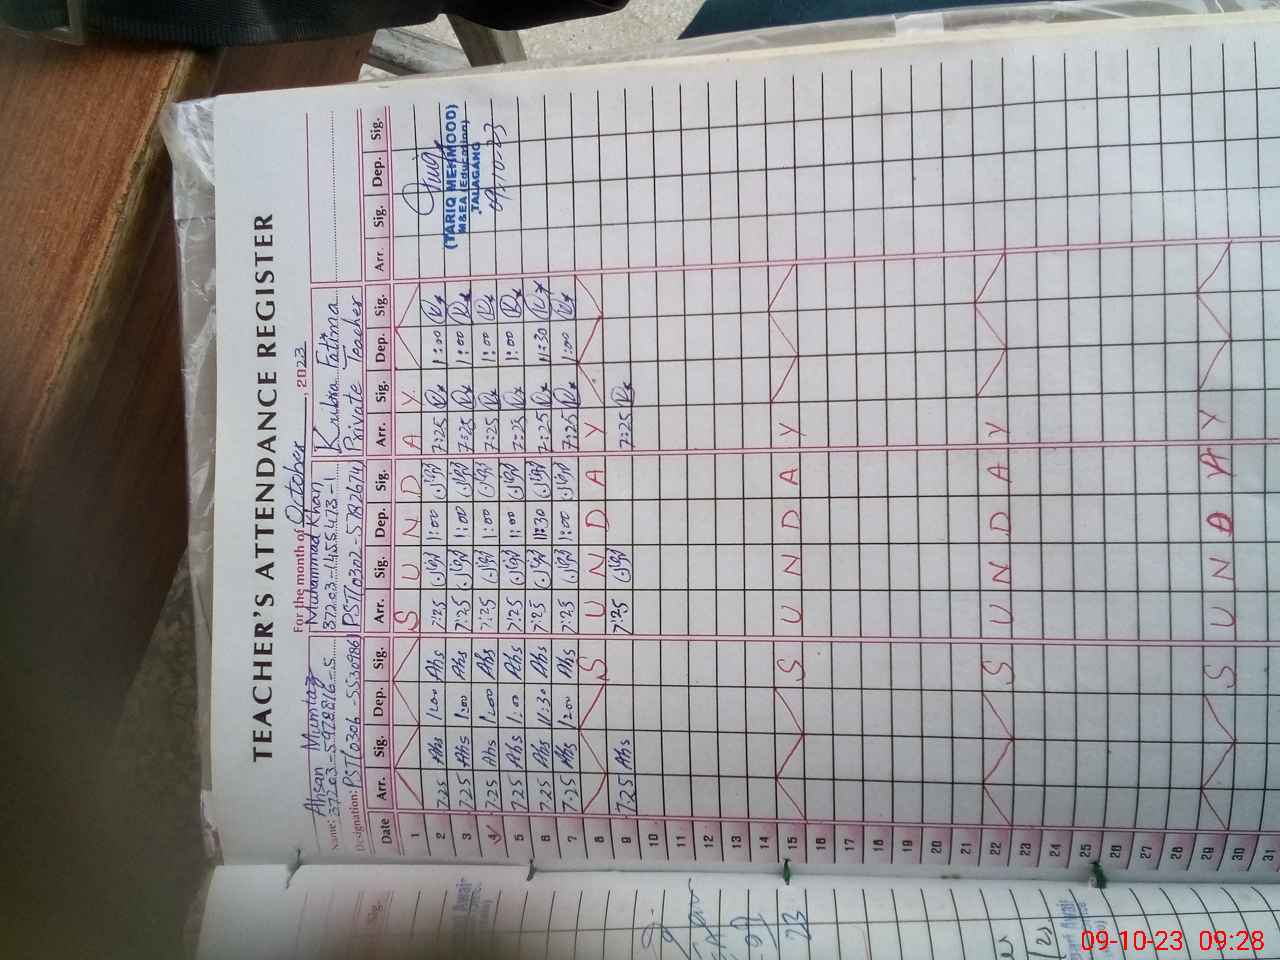 TEACHER'S ATTENDANCE REGISTER
For the month of October, 2023
Name: Ahsan Mumtaz Muhammad Khan Kubra Fatima
37203-5978816-5 37203-1455473-1
Designation: PST/0306-5530986 PST/0302-5782674 Private Teacher
Date Arr. Sig. Dep. Sig. Arr. Sig. Dep. Sig. Arr. Sig. Dep. Sig. Arr. Sig. Dep. Sig.
1 S U N D A Y
2 7:25 Ahs 1:00 Ahs 7:25 1:00 7:25 1:00
3 7:25 Ahs 1:00 Ahs 7:25 1:00 7:25 1:00
4 7:25 Ahs 1:00 Ahs 7:25 1:00 7:25 1:00
5 7:25 Ahs 1:00 Ahs 7:25 1:00 7:25 1:00
6 7:25 Ahs 11:30 Ahs 7:25 11:30 7:25 11:30
7 7:25 Ahs 1:00 Ahs 7:25 1:00 7:25 1:00
8 S U N D A Y
9 7:25 Ahs 7:25 7:25
10
11
12
13
14
15 S U N D A Y
16
17
18
19
20
21
22 S U N D A Y
23
24
25
26
27
28
29 S U N D A Y
30
31
(TARIQ MEHMOOD)
M&EA (Education)
TALAGANG
09-10-23
Sig.
23
09-10-23 09:28